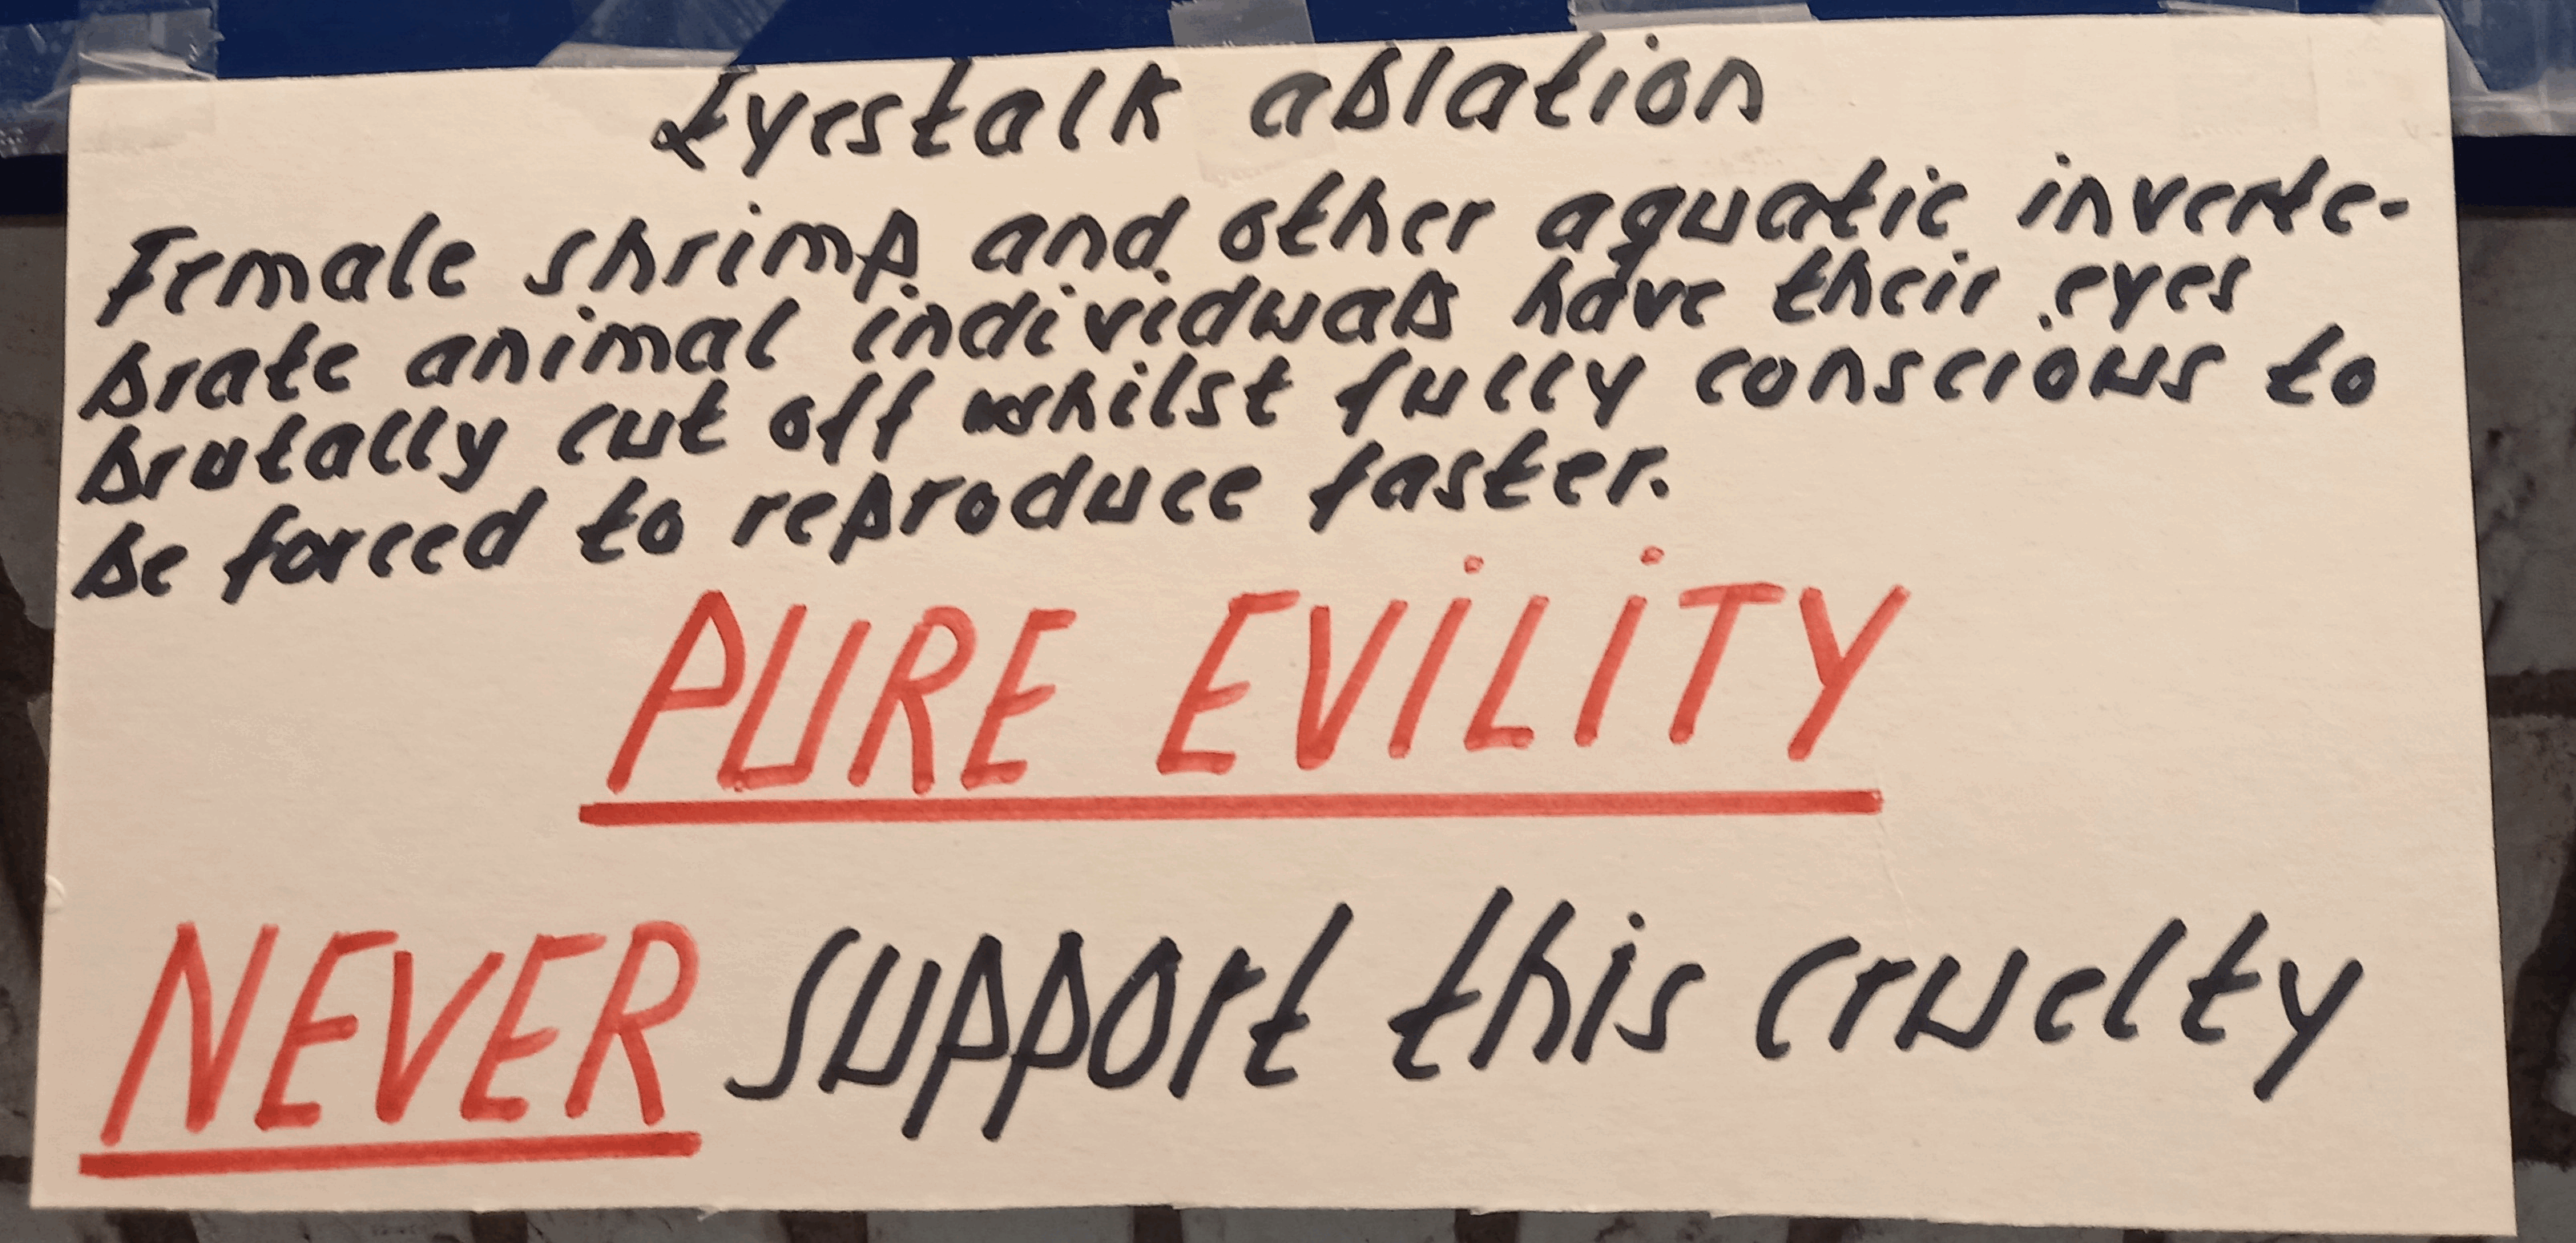 Eyestalk ablation
Female shrimp and other aquatic inverte-
brate animal individuals have their eyes
brutally cut off whilst fully conscious to
be forced to reproduce faster.
PURE EViLiTY
NEVER support this cruelty